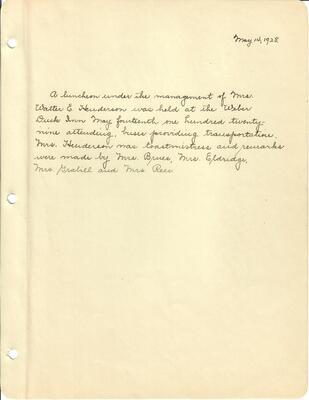 May 14, 1928
A luncheon under the management of Mrs.
Walter E. Henderson was held at the Weber
Duck Inn May fourteenth one hundred twenty-
nine attending, buses providing transportation.
Mrs. Henderson was toastmistress and remarks
were made by Mrs. Brues, Mrs. Eldridge,
Mrs. Grabill and Mrs. Rees